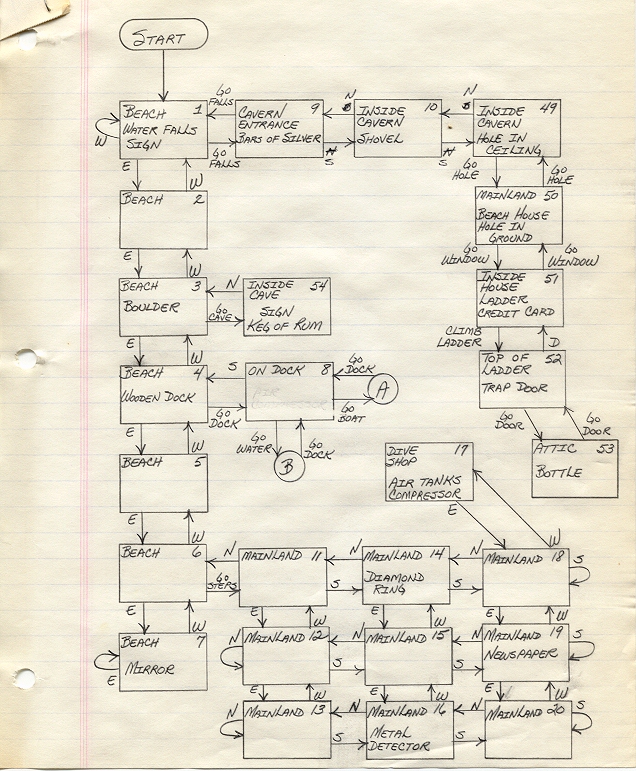 START
BEACH 1
WATER FALLS
SIGN
W
GO
FALLS
GO
FALLS
CAVERN 9
ENTRANCE
BARS OF SILVER
N
S
INSIDE 10
CAVERN
SHOVEL
N
S
INSIDE 49
CAVERN
HOLE IN
CEILING
E
W
GO
HOLE
GO
HOLE
BEACH 2
MAINLAND 50
BEACH HOUSE
HOLE IN
GROUND
E
W
GO
WINDOW
GO
WINDOW
BEACH 3
BOULDER
N
GO
CAVE
INSIDE 54
CAVE
SIGN
KEG OF RUM
INSIDE 51
HOUSE
LADDER
CREDIT CARD
E
W
CLIMB
LADDER
D
BEACH 4
WOODEN DOCK
S
GO
DOCK
ON DOCK 8
GO
DOCK
GO
BOAT
A
TOP OF 52
LADDER
TRAP DOOR
E
W
GO
WATER
GO
DOCK
B
GO
DOOR
GO
DOOR
BEACH 5
DIVE 17
SHOP
AIR TANKS
COMPRESSOR
ATTIC 53
BOTTLE
E
W
E
W
BEACH 6
N
GO
STEPS
MAINLAND 11
N
S
MAINLAND 14
DIAMOND
RING
N
S
MAINLAND 18
S
E
W
E
W
E
W
E
W
BEACH 7
MIRROR
E
N
MAINLAND 12
N
S
MAINLAND 15
N
S
MAINLAND 19
NEWSPAPER
S
E
W
E
W
E
W
N
MAINLAND 13
N
S
MAINLAND 16
METAL
DETECTOR
N
S
MAINLAND 20
S